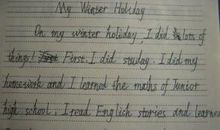 My Winter Holiday
On my winter holiday, I did lots of
things! First, I did study. I did my
homework and I learned the maths of Junior
high school. I read English stories and learned